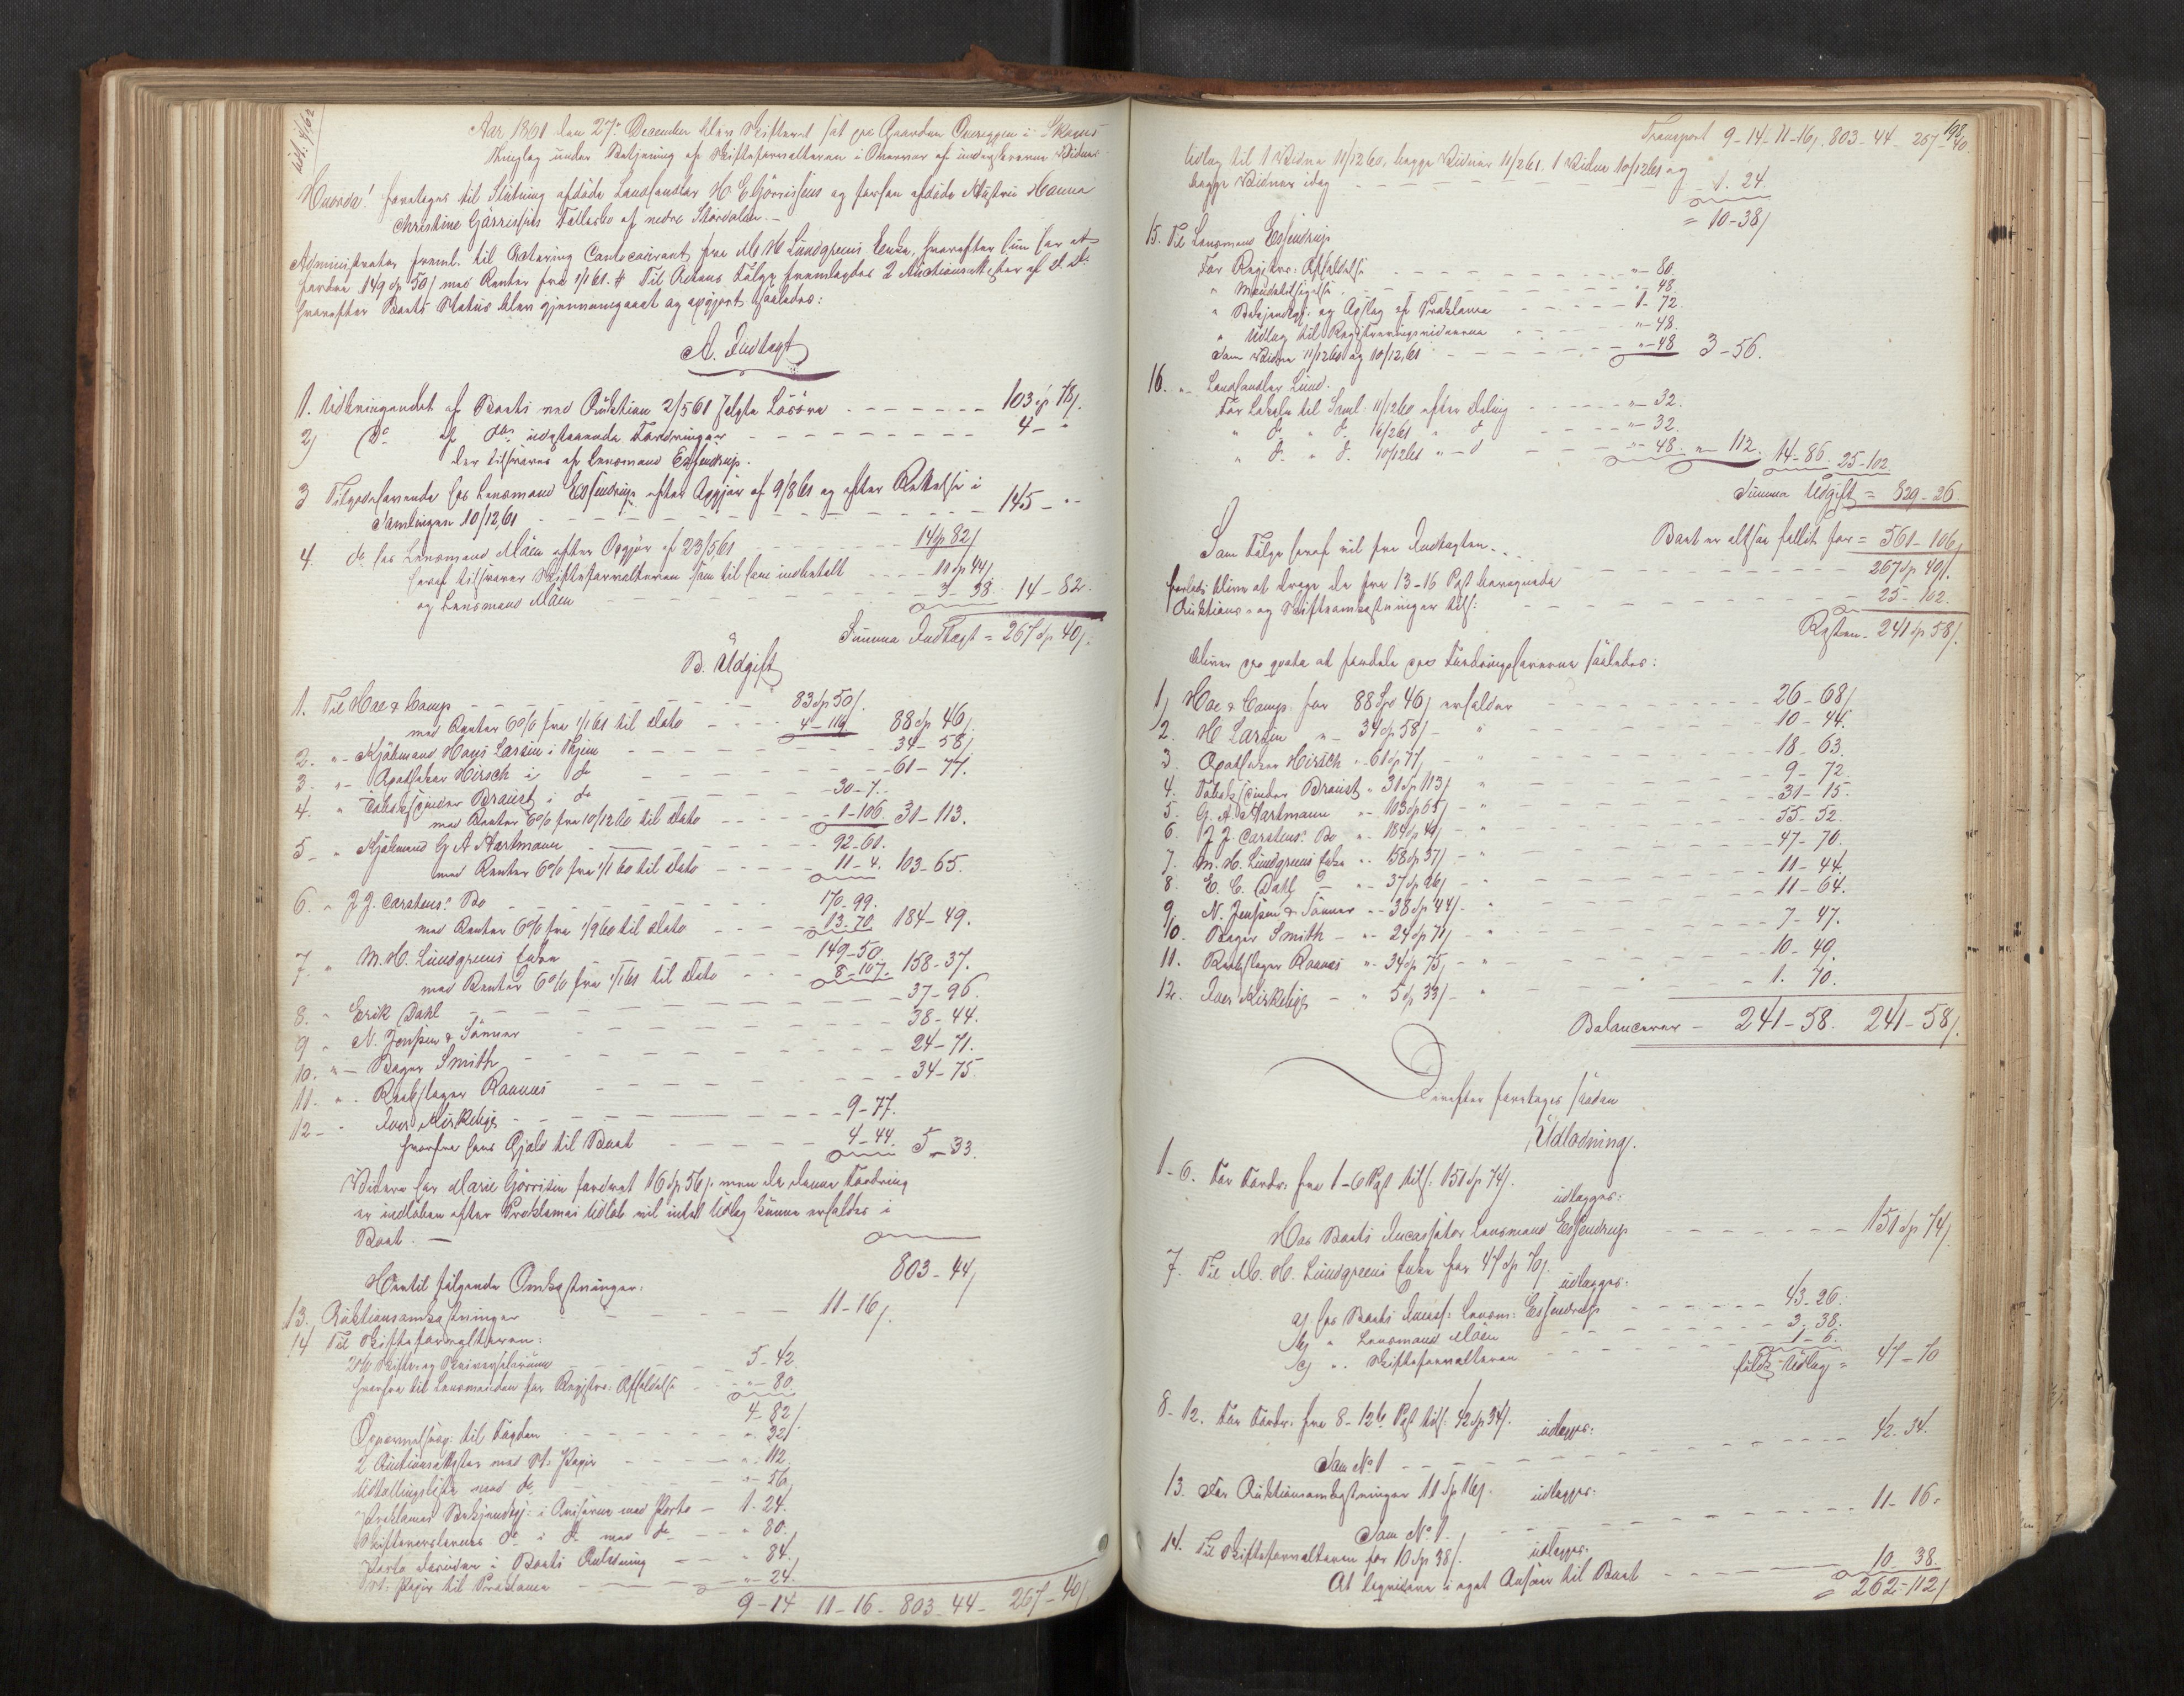 Aar 1861 den 27de December blev Skifteret sat paa Gaarden Overeggen i Skogns
Thinglag under Betjening af Skifteforvalteren i Overvær af undertegnede Vidner
Hvorda! foretoges til Slutning afdøde Landhandler H E Gjörrissens og forhen afdøde Hustru Hanna
Christine Görrissens Fællesbo af nedre Stördalen. -
Administrator freml. til Actering Contocourant fra M. H. Lundgreens Enke, hvorefter hun har at
fordre 149 Sp 50 / med Renter fra 1/1 61. # Til Actens Følge fremlagdes 2 Auctionsattester af d. D.
hvorefter Boets Status blev gjennemgaaet og opgjort saaledes:
A. Indtægt
1. Udbringendet af Boets ved Auktion 2/5 61 solgte Løsöre - - - 103 Sp 78 /.
2) Do af dets udestaaende Fordringer - - - 4 - "
der tilsvares af Lensmand Essendrup.
3 Tilgodehavende hos Lensmand Essendrup efter Opgjör af 9/8 61 og efter Rettelse i
Samlingen 10/12 61 - - - 145 - "
4. do hos Lensmand Mäen efter Opgjör af 23/5 61 - - - 14 Sp 82 /
heraf tilsvarer Skifteforvalteren som til ham indbetalt - - - 11 Sp 44 /
og Lensmand Mäen - - - 3 - 38. 14 - 82.
Summa Indtægt = 267 Sp 40 /.
B. Udgift
1. Til Hoe & Comp - - - 83 Sp 50 /.
med Renter 6% fra 1/1 61 til Dato - - - 4 - 116. 88 Sp 46 /
2. " - Kjöbmand Hans Larsen i Thjem - - - 34 - 58 /
3. " - Apotheker Hirsch i do - - - 61 - 77.
4. " Tobakspinder Braust i do - - - 30 - 7.
med Renter 6% fra 10/12 60 til Dato - - - 1 - 106. 31 - 113.
5 - " Kjöbmand G A Hartmann - - - 92 - 61.
med Renter 6% fra 1/1 60 til Dato - - - 11 - 4. 103 - 65.
6. " J J. Carstens: Bo - - - 170 - 99.
med Renter 6% fra 1/9 60 til Dato - - - 13 - 70 184 - 49.
7. " M. H. Lundgreens Enke - - - 149 - 50
med Renter 6% fra 1/1 61 til Dato - - - 8 - 107. 158 - 37.
8. " Erik Dahl - - - 37 - 96.
9 " N. Jenssen & Sönner - - - 38 - 44.
10. " - Bager Smith - - - 24 - 71.
11. " - Rebslager Raanes - - - 34 - 75
12 - " Iver Kirkelige - - - 9 - 77.
hvorfra hans Gjæld til Boet - - - 4 - 44. 5 - 33.
Videre har Marie Görrissen fordret 16 Sp 56 /. men da denne Fordring
er indlöben efter Proklamas Udlöb vil intet Udlæg kunne erholdes i
Boet. -
803 - 44 /
Hertil følgende Omkostninger:
13. Auktionsomkostninger - - - 11 - 16 /.
14 Til Skifteforvalteren:
2% Skifte- og Skriversalarium - - - 5 - 42.
hvorfra til Lensmanden for Registr: Afholdelse - - - " - 80.
4 - 82 /.
Oversendelse: til Fogden - - - " 32 /
2 Auctionsattester med St. Papir - - - " 112.
Udtællingsliste med do - - - " - 56.
Proklamas Bekjendtgj: i Aviserne med Porto - 1 - 24.
Skifteværelernes do i do med do - - - " 80.
Porto desuden i Boets Anledning - - - " 84.
St. Papir til Proklama - - - " - 24.
9 - 14 11 - 16 - 803 - 44 - 267 - 40 /
198
Transport 9 - 14 - 11 - 16 /. 803 - 44 - 267 - 40.
Udlæg til 1 Vidne 11/12 60, begge Vidner 11/2 61. 1 Vidne 10/12 61 og
begge Vidner idag - - - 1. 24.
= 10 - 38 /
15. Til Lensmand Essendrup
For Registr: Afholdelse - - - " - 80.
" Mandetilsigelse - - - " - 48.
" Bekjendtgj. og Opslag af Proklama - - - 1 - 72.
" Udlæg til Registreringsvidnerne - - - " - 48.
Som Vidne 11/12 60 og 10/12 61 - - - " - 48 3 - 56.
16. " Landhandler Lund.
For Lokale til Saml: 11/12 60 efter Deling - - - " - 32.
" do " do 16/2 61 " do - - - " - 32.
" do " do 10/12 61 " - do - - - " - 48. " - 112. 14 - 86. 25 - 102
Summa Udgift = 829 - 26.
Boet er altsaa fallit for = 561 - 106 /
Som Fölge heraf vil fra Indtægten - - - 267 Sp 40 /.
forlods blive at drage de fra 13 - 16 Post beregnede
Auktions- og Skifteomkostninger tils: - - - 25 - 102.
Resten - 241 Sp 58 /.
bliver pro quota at fordele paa Fordringshaverne saaledes:
1, Hoe & Comp. for 88 Spd 46 / erholder - - - 26 - 68 /
2. H Larsen " - 34 Sp 58 / - " - - - 10 - 44.
3. Apotheker Hirsch " 61 Sp 77 / - " - - - 18 - 63.
4. Tobakspinder Braust " 31 Sp 113 / " - - - 9 - 72.
5. G. A Hartmann " - 103 Sp 65 / - " - - - 31 - 15.
6. J J. Carstens: Bo " - 184 Sp 49 / - " - - - 55 - 52.
7. M. H. Lundgreens Enke " - 158 Sp 37 / - " - - - 47 - 70.
8. E. C. Dahl " - 37 Sp 96 / - " - - - 11 - 44.
9, N. Jenssen & Sönner " - 38 Sp 44 /. " - - - 11 - 64.
10. Bager Smith - " - 24 Sp 71 / - " - - - 7 - 47.
11. Rebslager Raanes " - 34 Sp 75 / - " - - - 10 - 49.
12. Iver Kirkelige - " 5 Sp 33 / - " - - - 1. 70.
Balancerer - 241 - 58. 241 - 58 /.
Derefter foretoges saadan
Udlodning.
1 - 6. For Fordr: fra 1 - 6 Post tils: 151 Sp 74 /.
udlægges:
Hos Boets Incassator Lensmand Essendrup - - - 151 Sp 74 /
7. Til M. H. Lundgreens Enke for 47 Sp 70 /.
udlægges:
a) hos Boets Incass: Lensm: Essendrup - - - 43 - 26.
b) " Lensmand Mäen - - - 3 - 38.
c) " Skifteforvalteren - - - 1 - 6.
fuldt Udlæg = 47 - 70
8 - 12. For Fordr: fra 8 - 12te Post tils: 42 Sp 34 /.
udlægges:
Som No 1 - - - 42. 34.
13. For Auktionsomkostninger 11 Sp 16 /.
udlægges:
Som No 1. - - - 11 - 16.
14. Til Skifteforvalteren for 10 Sp 38 /.
udlægges:
At liqvidere i eget Ansvar til Boet - - - 10 - 38.
= 262 - 112 /